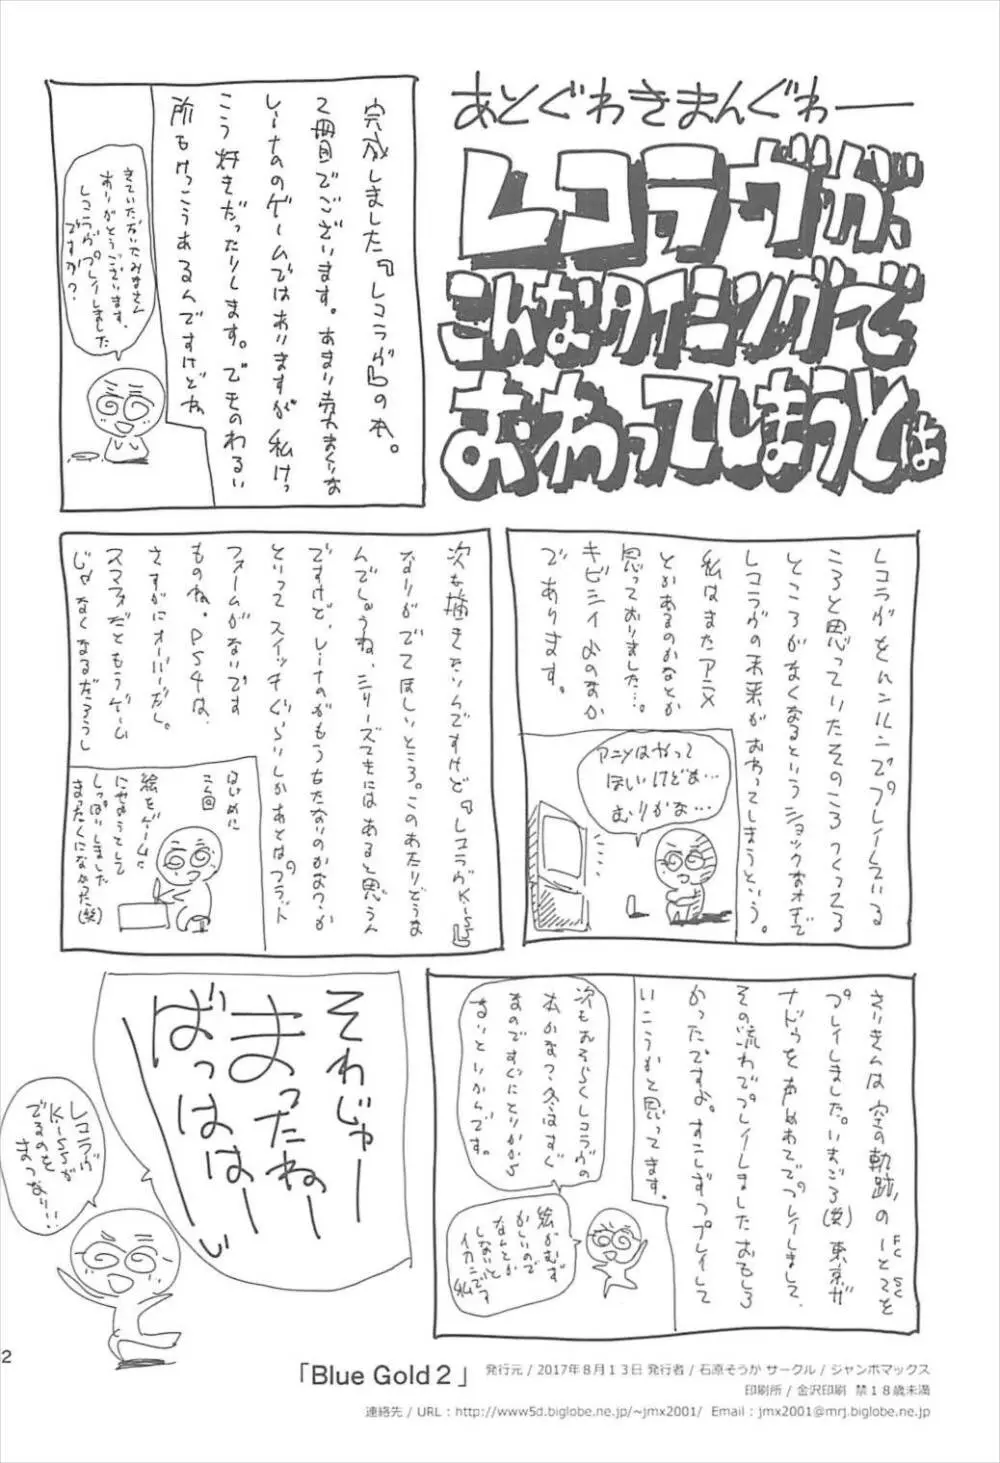 あとぐわきまんぐわー
レコラヴが、
こんなタイミングで
おわってしまうとは
完成しました『レコラヴ』の本。
2冊目でございます。あまり売れまくりな
レーナのゲームではありますが私けっ
こう好きだったりします。でもわるい
所もけっこうあるんですけどね
きていただいたみなさん
ありがとうございます。
レコラヴプレイしました
ですか?
レコラヴをハンルニでプレイしている
ころと思っていたそのころつくってる
ところがなくなるというショックなオチで
レコラヴの未来がおわってしまうという。
私はまたアニメ
とかあるのかなとか
思っておりました…。
キビシイよのなか
であります。
アニメはやって
ほしいけどぬ…
むりかな…
次も描きたいんですけど『レコラヴK-SS』
なりがでてほしいところ。このあたりどうな
んでしょうね、シリーズてきにはあると思うん
ですけど、レーナのがもうちたないのかなウーか
といってスイッチぐらいしかあとはプラット
フォームがないです
ものね。PS4は、
さすがにオーバーだし。
スマフォだともうゲーム
じゃなくなるだろうし
はじめに
この回
絵をゲームに
にせようとして
しっぱいしました
まったくになかった(笑)
さいきんは空の軌跡、のFCとSCとを
プレイしました。いまごろ(笑)東京ザ
ナドゥをお始めてプレイしまして、
その流れでプレイしましたおもしろ
かったですよ。すこしずつプレイして
いこうかと思ってます。
次もおそらくレコラヴの
本かなっ?冬はすぐ
なのですぐにとりかから
ないといかんです。
絵がむず
かしいので
なんとか
しないと
イカンです
私
そわじゃー
まったねー
ばっはは〜い
レコラヴ
K-SSが
でるのを
まつなり!!
2
「Blue Gold 2」
発行元 / 2017年8月13日 発行者 / 石原そうか サークル / ジャンボマックス
印刷所 / 金沢印刷 禁18歳未満
連絡先 / URL : http://www5d.biglobe.ne.jp/~jmx2001/ Email : jmx2001@mrj.biglobe.ne.jp